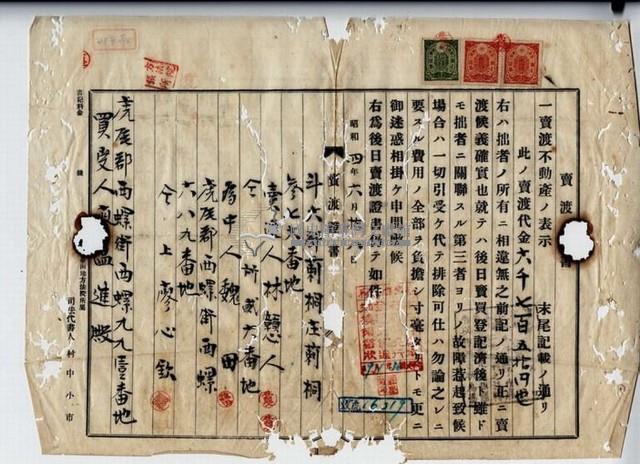 賣渡
書
一賣渡不動產ノ表示 末尾記載ノ通リ
此ノ賣渡代金六千七百五拾円也
右ハ拙者ノ所有ニ相違無之前記ノ通リ正ニ賣
渡候義確實也就テハ後日賣買登記濟後ト雖ド
モ拙者ニ關聯スル第三者ヨリノ故障惹起致候
場合ハ一切引受ケ代テ排除可仕ハ勿論之レニ
要スル費用ノ全部ヲ負擔シ寸毫タリトモ更ニ
御迷惑相掛ケ申間敷候
右為後日賣渡證書依テ如件
昭和四年六月
賣渡書
斗六郡莿桐庄莿桐
參七番地
賣人林戇人
仝所貳六番地
為中人魏田
虎尾郡西螺街西螺
六八九番地
仝上廖心欽
虎尾郡西螺街西螺九九壹番地
買受人進殿
司法代書人村中小市
書記料金 錢
6319